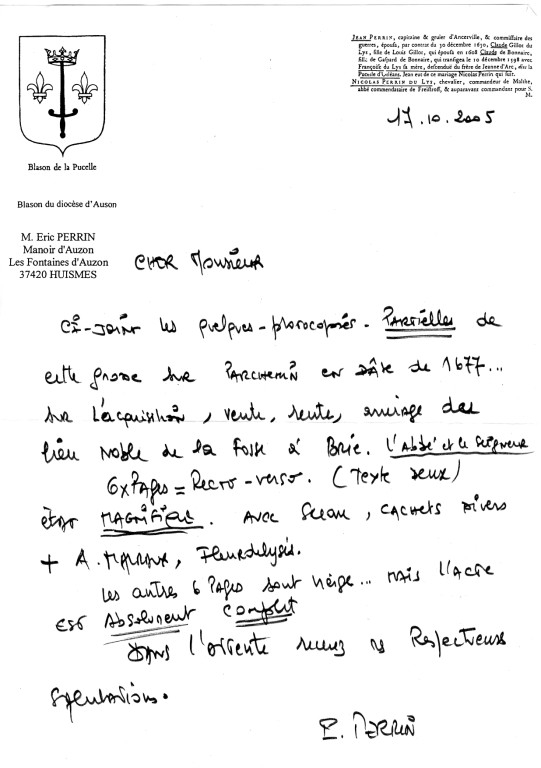 JEAN PERRIN, capitaine & gruier d'Ancerville, & commissaire des
guerres, épousa, par contrat du 30 décembre 1630, Claude Gillot du
Lys, fille de Louis Gillot, qui épousa en 1608 Claude de Bonnaire,
fille de Gaspard de Bonnaire, qui transigea le 10 décembre 1598 avec
Françoise du Lys sa mère, descendue du frère de Jeanne d'Arc, dite la
Pucelle d'Orléans. Jean eut de ce mariage Nicolas Perrin qui suit.
NICOLAS PERRIN DU LYS, chevalier, commandeur de Malthe,
abbé commendataire de Freistroff, & auparavant commandant pour S.
M.
17.10.2005
Blason de la Pucelle
Blason du diocèse d'Auson
M. Eric PERRIN
Manoir d'Auzon
Les Fontaines d'Auzon
37420 HUISMES
CHER Monsieur
Ci-joint les quelques-photocopies. PARTIELLES de
cette grosse sur PARCHEMIN en DÂTE de 1677...
sur L'acquisition, vente, rente, du
lieu Noble de la Fosse à Brie. L'Abbé et le Seigneur
6xPages = Recto-verso. (Texte deux)
état MAGNIFIQUE. AVEC Sceau, CACHETS Divers
+ A. Fleurdelysés.
Les autres 6 Pages sont neige... MAIS L'Acte
EST Absolument Complet
DANS L'attente recevez Respectueuses
Salutations.
E. PERRIN